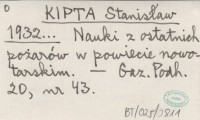 0
KIPTA Stanisław
1932... Nauki z ostatnich
pożarów w powiecie nowo-
tarskim. — Gaz. Podh.
20, nr 43.
BT/025/3811